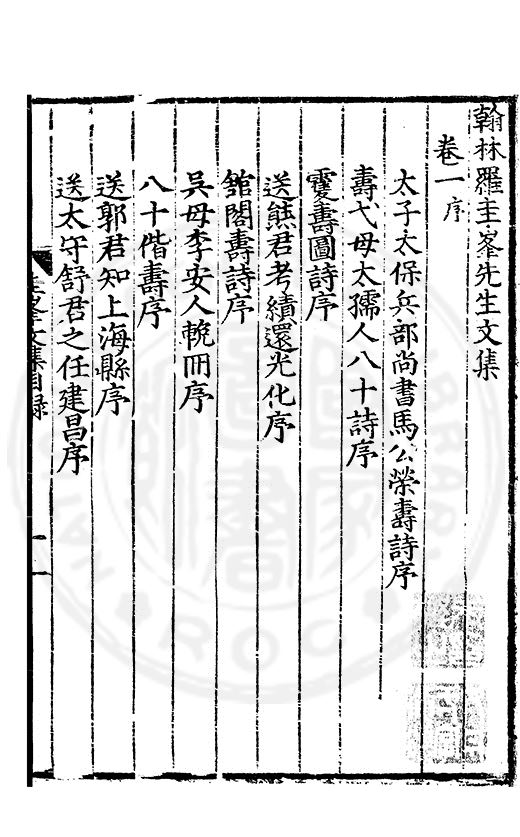 翰林羅圭峯先生文集
卷一 序
太子太保兵部尚書馬公榮壽詩序
壽弋母太孺人八十詩序
雙壽圖詩序
送熊君考績還光化序
館閣壽詩序
吳母李安人輓冊序
八十偕壽序
送郭君知上海縣序
送太守舒君之任建昌序
圭峯文集目録 一